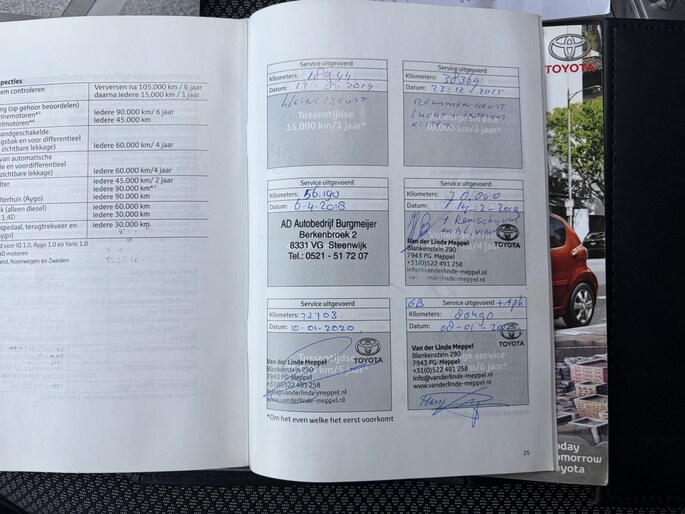 pecties
em controleren
Verversen na 105.000 km / 6 jaar
daarna Iedere 15.000 km / 1 jaar
ng (op gehoor beoordelen)
inemotoren*5
iedere 90.000 km/ 6 jaar
elmotoren*6
iedere 45.000 km
andgeschakelde
gsbak en voor differentieel
zichtbare lekkage)
iedere 60.000 km/ 4 jaar
van automatische
e en voordifferentieel
zichtbare lekkage)
iedere 60.000 km/4 jaar
lter
iedere 45.000 km/ 2 jaar
iedere 90.000 km*7
lterhuis (Aygo)
iedere 90.000 km
k (alleen diesel)
iedere 60.000 km
1.4D
iedere 30.000 km
spedaal, terugtrekveer en
Aygo)
iedere 30.000 km
d voor IQ 1.0, Aygo 1.0 en Yaris 1.0
AD motoren
and, Noorwegen en Zweden
Service uitgevoerd
Kilometers: 18944
Datum:
kleine beurt
Tussentijdse
15.000 km/1 jaar*
Service uitgevoerd
Kilometers: 38369
Datum: 23-12-2015
service
30.000 km/2 jaar*
Service uitgevoerd
Kilometers: 56.190
Datum: 6-4-2018
AD Autobedrijf Burgmeijer
Berkenbroek 2
8331 VG Steenwijk
Tel.: 0521 - 51 72 07
Service uitgevoerd
Kilometers: 70.000
Datum:
TOYOTA
Van der Linde Meppel
Blankenstein 290
7943 PG Meppel
+31(0)522 491 258
info@vanderlinde-meppel.nl
www.vanderlinde-meppel.nl
Service uitgevoerd
Kilometers: 73703.
Datum: 10-01-2020
Tussentijdse
km/5 jaar*
TOYOTA
Van der Linde Meppel
Blankenstein 290
7943 PG Meppel
+31(0)522 491 258
info@vanderlinde-meppel.nl
www.vanderlinde-meppel.nl
GB
Service uitgevoerd
+apk
Kilometers:
Datum:
service
km/6 jaar*
TOYOTA
Van der Linde Meppel
Blankenstein 290
7943 PG Meppel
+31(0)522 491 258
info@vanderlinde-meppel.nl
www.vanderlinde-meppel.nl
*Om het even welke het eerst voorkomt
25
TOYOTA
oday
omorrow
oyota